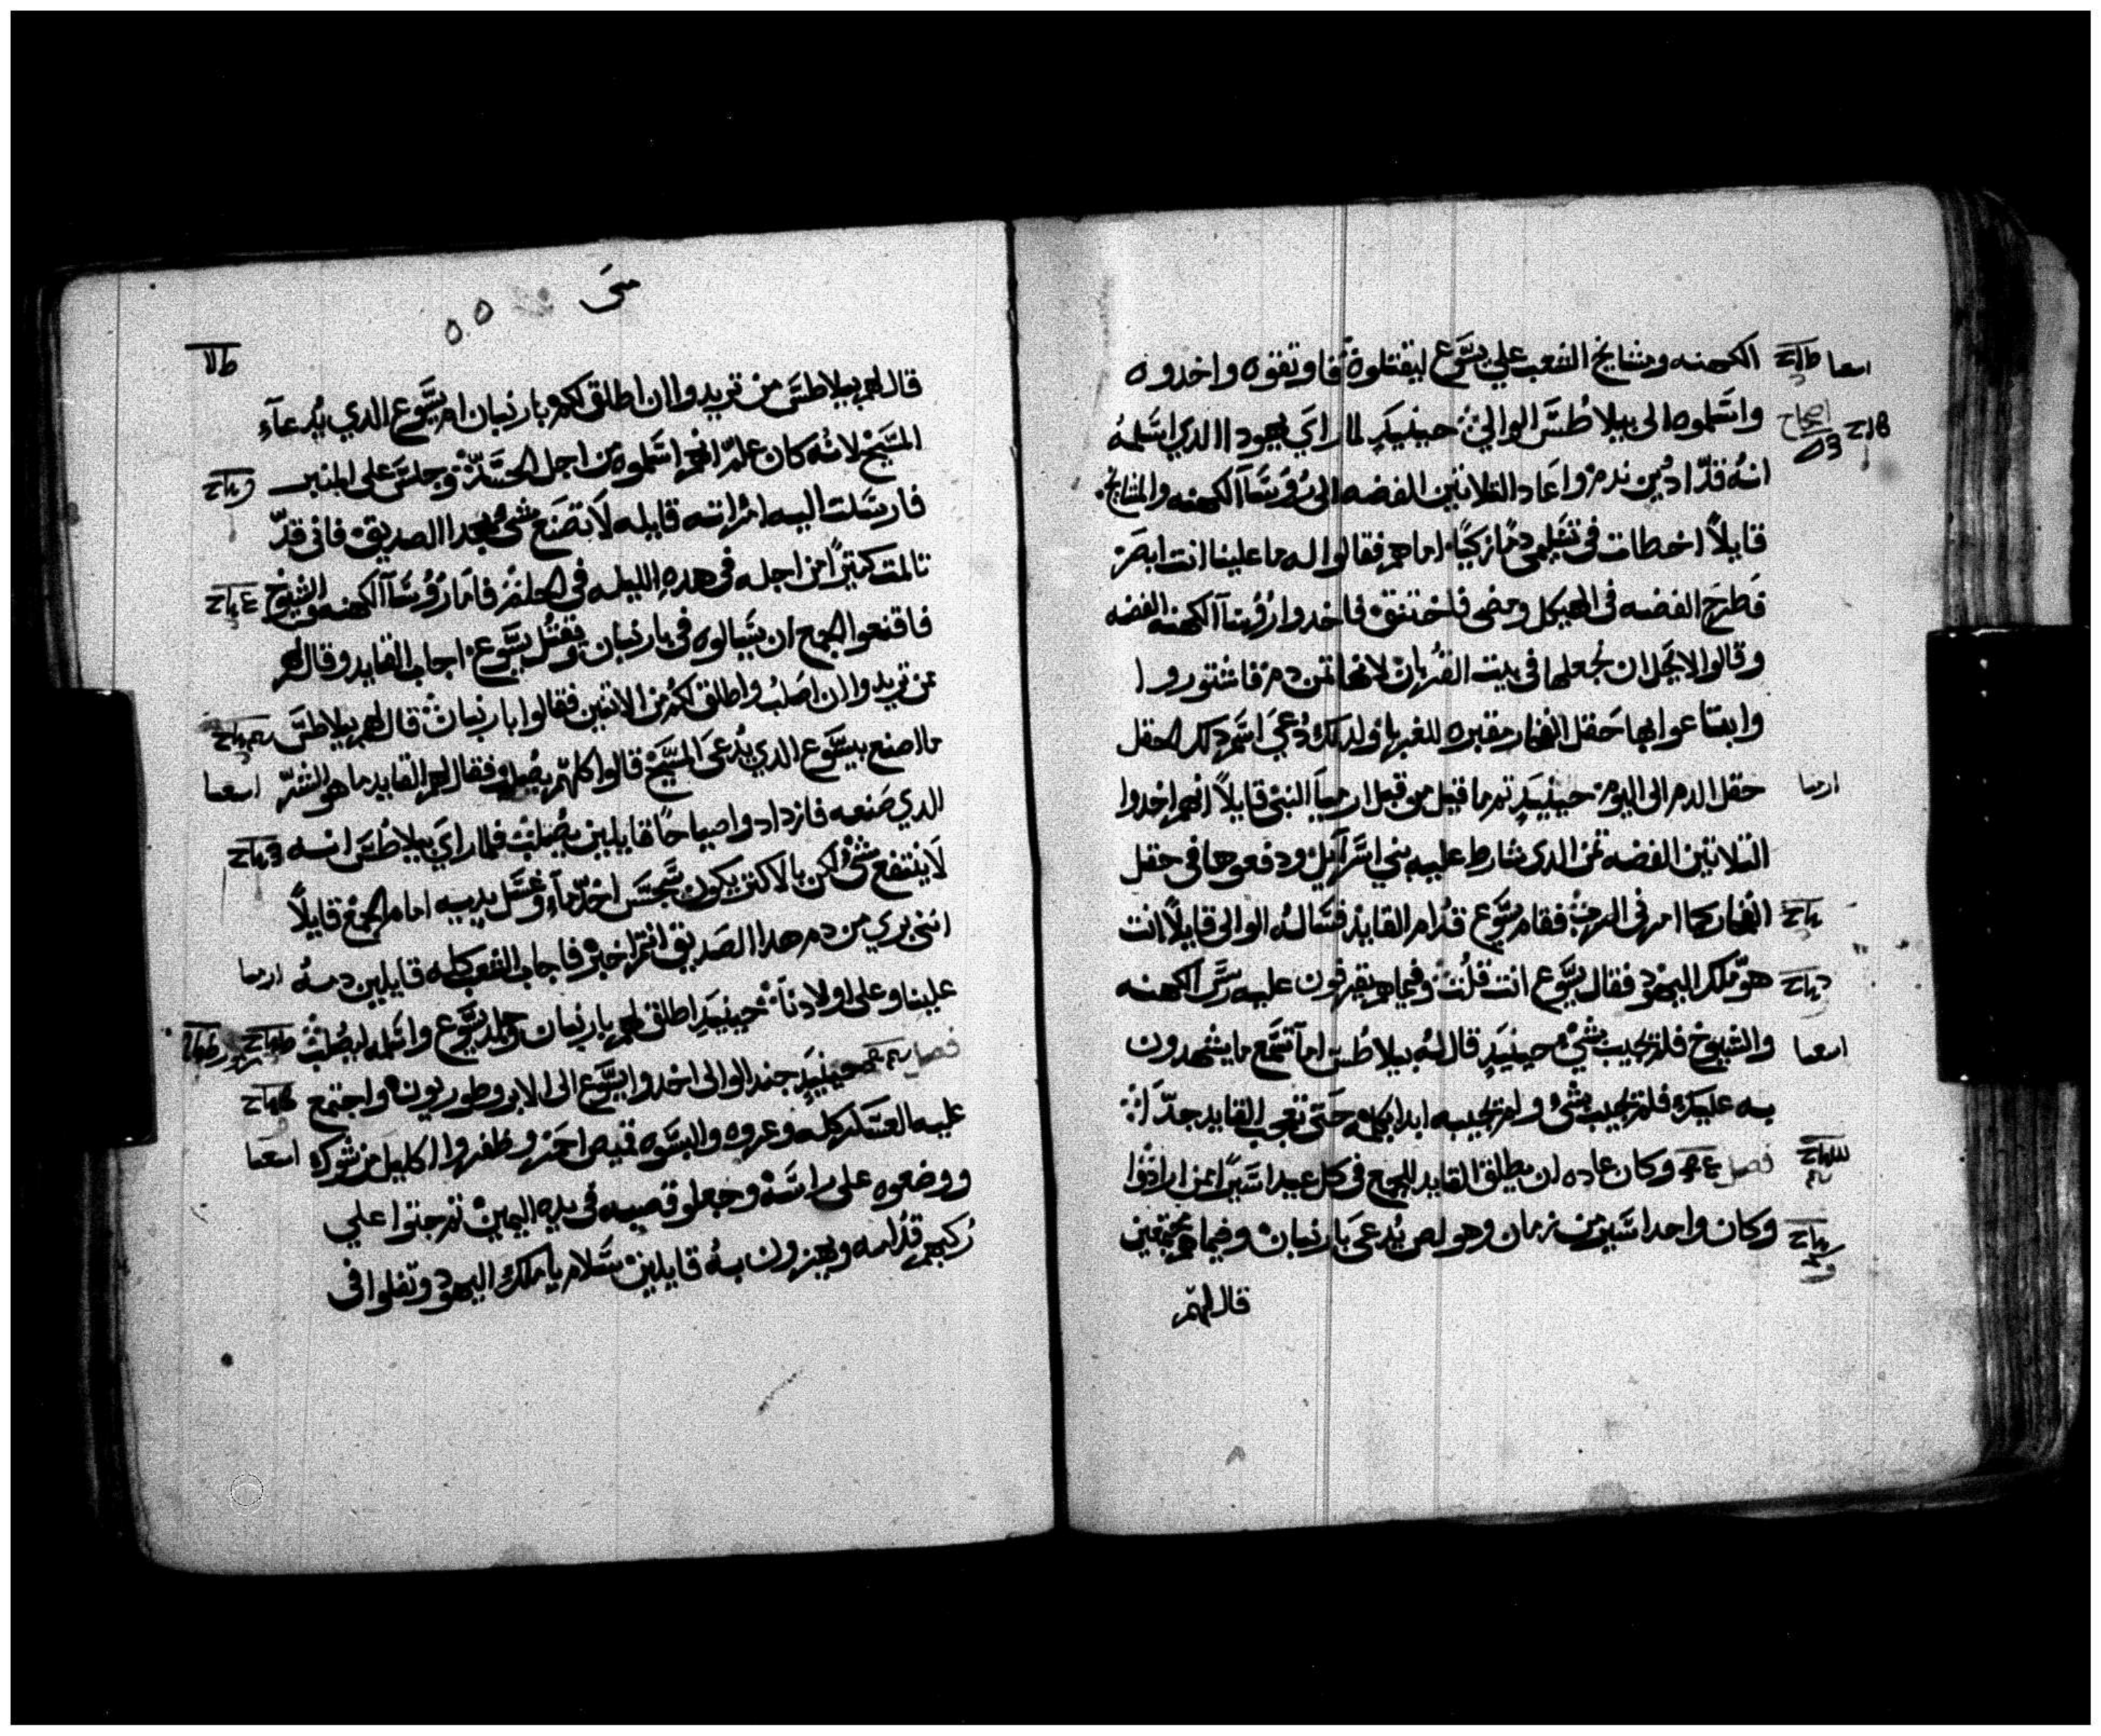 الكهنه ومشايخ الشعب علي يسوع ليقتلوه فاوتقوه واخدوه
واسلموه الى بيلاطس الوالي حينيد لما راي يهودا الدي اسلمه
انه قد ادين ندم واعاد التلاتين الفضه الى روسا الكهنه والمشايخ
قايلاً اخطات في تسليمي دمًا زكيًا اما هم فقالوا له ما علينا انت ابصر
فطرح الفضه في الهيكل ومضى فاختنق فاخدوا روسا الكهنه الفضه
وقالوا لا يحل ان نجعلها في بيت القربان لانها تمن دم فاشتوروا
وابتاعوا بها حقل الفخار مقبره للغربا ولدلك دعي اسم دلك الحقل
حقل الدم الى اليوم حينيد تم ما قيل من قبل ارميا النبي قايلاً انهم اخدوا
التلاتين الفضه تمن الدي شارط عليه بني اسراييل ودفعوها في حقل
الفخار كما امرني الرب فقام يسوع قدام القايد فساله الوالى قايلاً انت
هو ملك اليهود فقال يسوع انت قلت وفيما هم يقرفون عليه رسا الكهنه
والشيوخ فلم يجيب بشي حينيد قال له بيلاطس اما تسمع ما يشهدون
به عليك فلم يجيب بشي ولم يجيبه ابدا بكلمه حتى تعجب القايد جدا
فصل وكان عاده ان يطلق القايد للجمع في كل عيد اسيرًا من ارادوا
وكان واحد اسير من زمان وهو لص يدعى بارنبان وفيما هم مجتمعين
قال لهم
اشعيا
اصحاح
ارميا
اشعيا
متى
قال لهم بيلاطس من تريدوا ان اطلق لكم بارنبان ام يسوع الدي يدعاء
المسيح لانه كان علم انهم اسلموه من اجل الحسد وجلس على المنبر
فارسلت اليه امراته قايله لا تصنع شي بهدا الصديق فاني قد
تالمت كتيرًا من اجله في هده الليله في الحلم فاما روسا الكهنه والشيوخ
فاقنعوا الجمع ان يسالوه في بارنبان وتقتل يسوع اجاب القايد وقال لهم
من تريدوا ان اصلب واطلق لكم من الاتنين فقالوا بارنبان قال لهم بيلاطس
ما اصنع بيسوع الدي يدعى المسيح قالوا كلهم يصلب فقال لهم القايد ما هو الشر
الدي صنعه فازدادوا صياحًا قايلين يصلب فلما راي بيلاطس انه
لا ينتفع شي لكن بالاكتر يكون سجس اخد ماء وغسل يديه امام الجمع قايلاً
انني بري من دم هدا الصديق انتم اخبر فاجاب الشعب كله قايلين دمه
علينا وعلى اولادنا حينيد اطلق لهم بارنبان وجلد يسوع واسلمه ليصلب
فصل حينيد جند الوالى اخدوا يسوع الى الابروطوريون واجتمع
عليه العسكر كله وعروه والبسوه قميص احمر وظفروا اكليل من شوك
ووضعوه على راسه وجعلو قصبه في يده اليمين تم جتوا علي
ركبهم قدامه ويهزون به قايلين سلام يا ملك اليهود وتفلوا في
اشعيا
ارميا
اشعيا